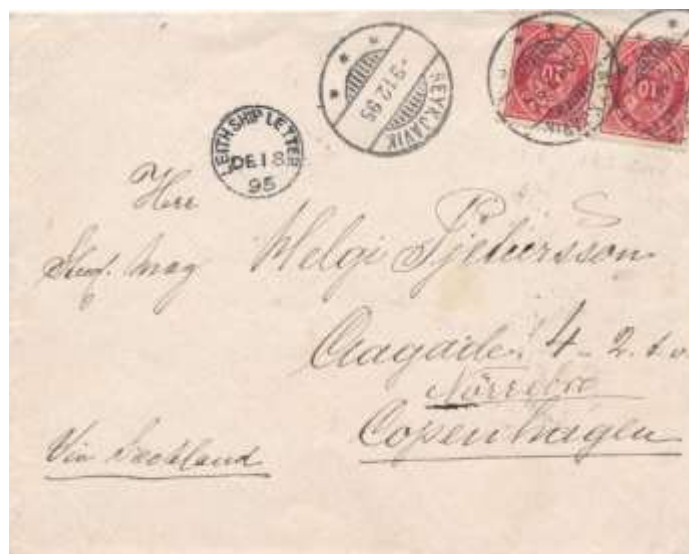 REYKJAVIK
-9.12.95
10
10
LEITH SHIP LETTER
DE 18
95
Herr
Stud. mag Helgi Pjetursson
Aagade 4 - 2.
Nörrebro
Copenhagen
Via